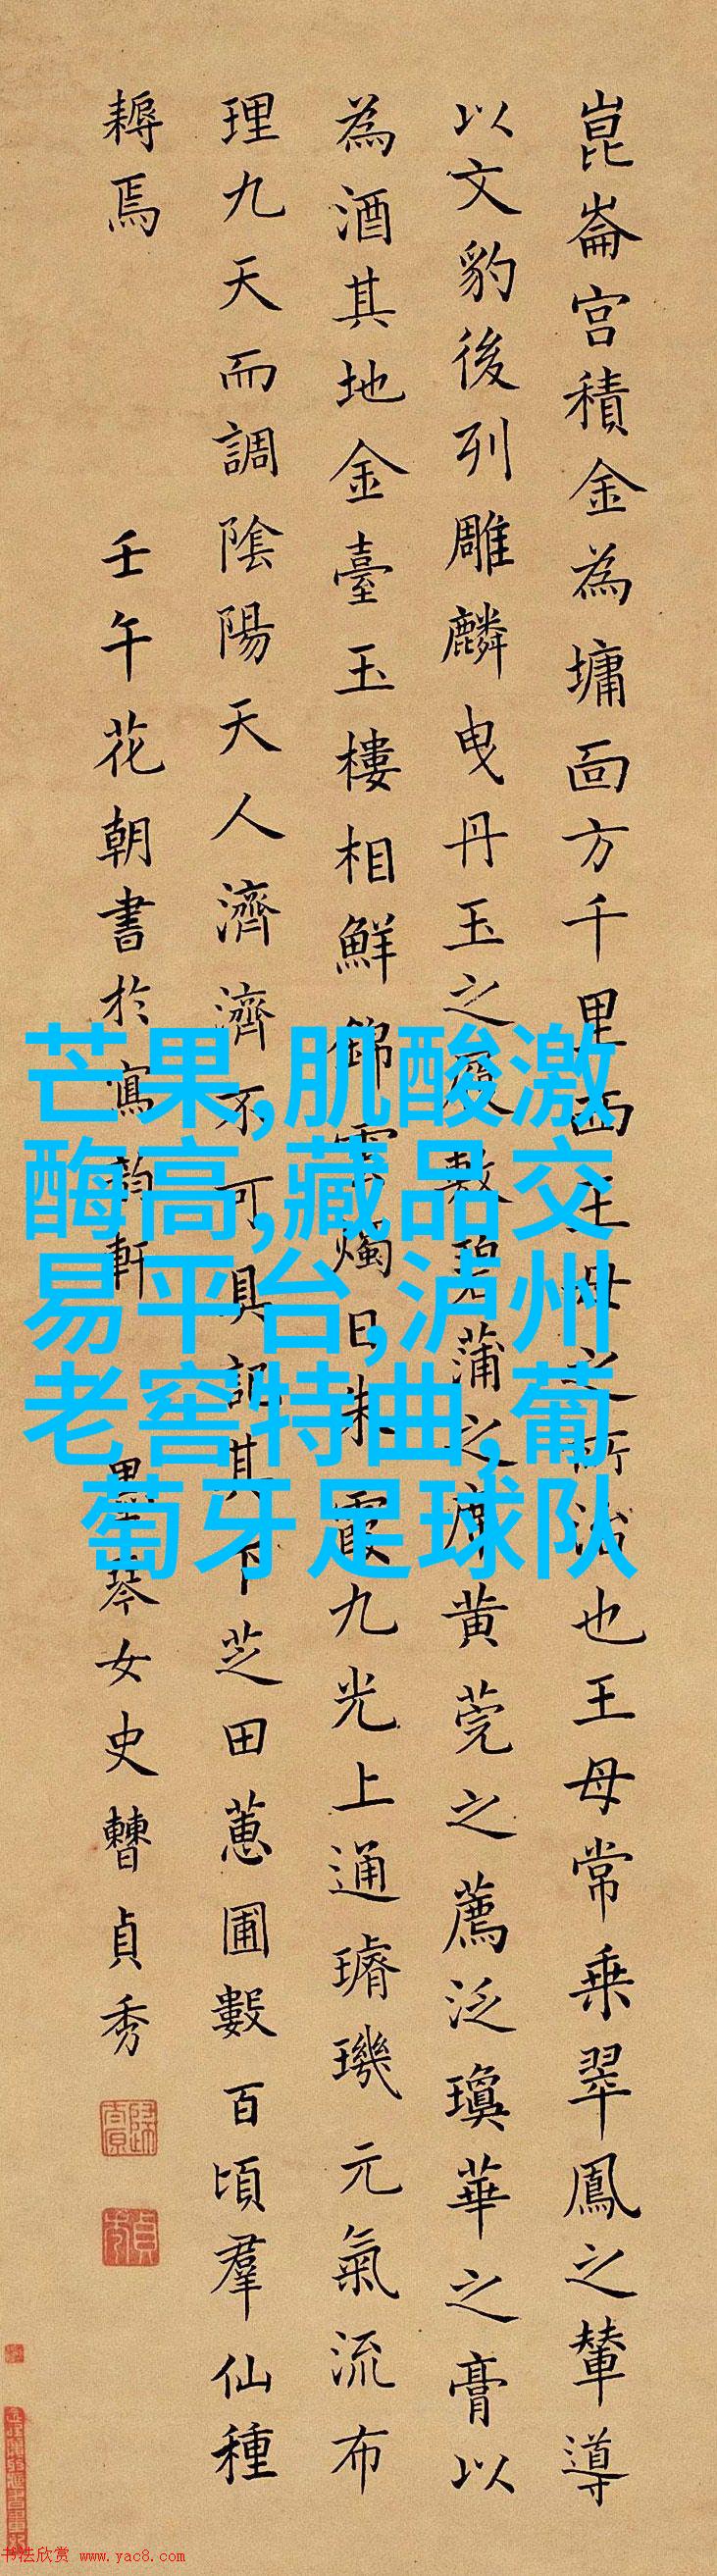 崑崙宮積金為墉面方千里西王母之所治也王母常乗翠鳳之輦導
以文豹後列雕麟曳丹玉之履敷碧蒲之席黄莞之薦泛瓊華之膏以
為酒其地金臺玉樓相鮮錦雲燭日朱霞九光上通璿璣元氣流布
理九天而調陰陽天人濟濟不可具記其下芝田蕙圃數百頃羣仙種
耨焉
壬午花朝書於寫韵軒
墨琴女史曹貞秀
芒果,肌酸激
酶高,藏品交
易平台,泸州
老窖特曲,葡
萄牙足球队
书法欣赏 www.yac8.com